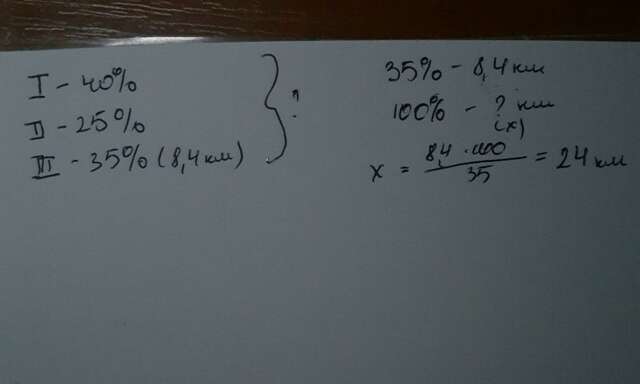 I - 40%
II - 25%
III - 35% (8,4 км)
?
35% - 8,4 км
100% - ? км
(x)
x = 8,4 · 100 / 35 = 24 км